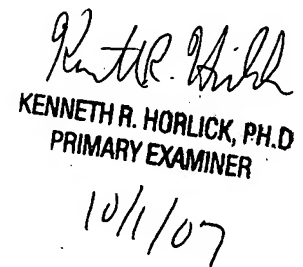 Kenneth R. Horlick
KENNETH R. HORLICK, PH.D
PRIMARY EXAMINER
10/1/07